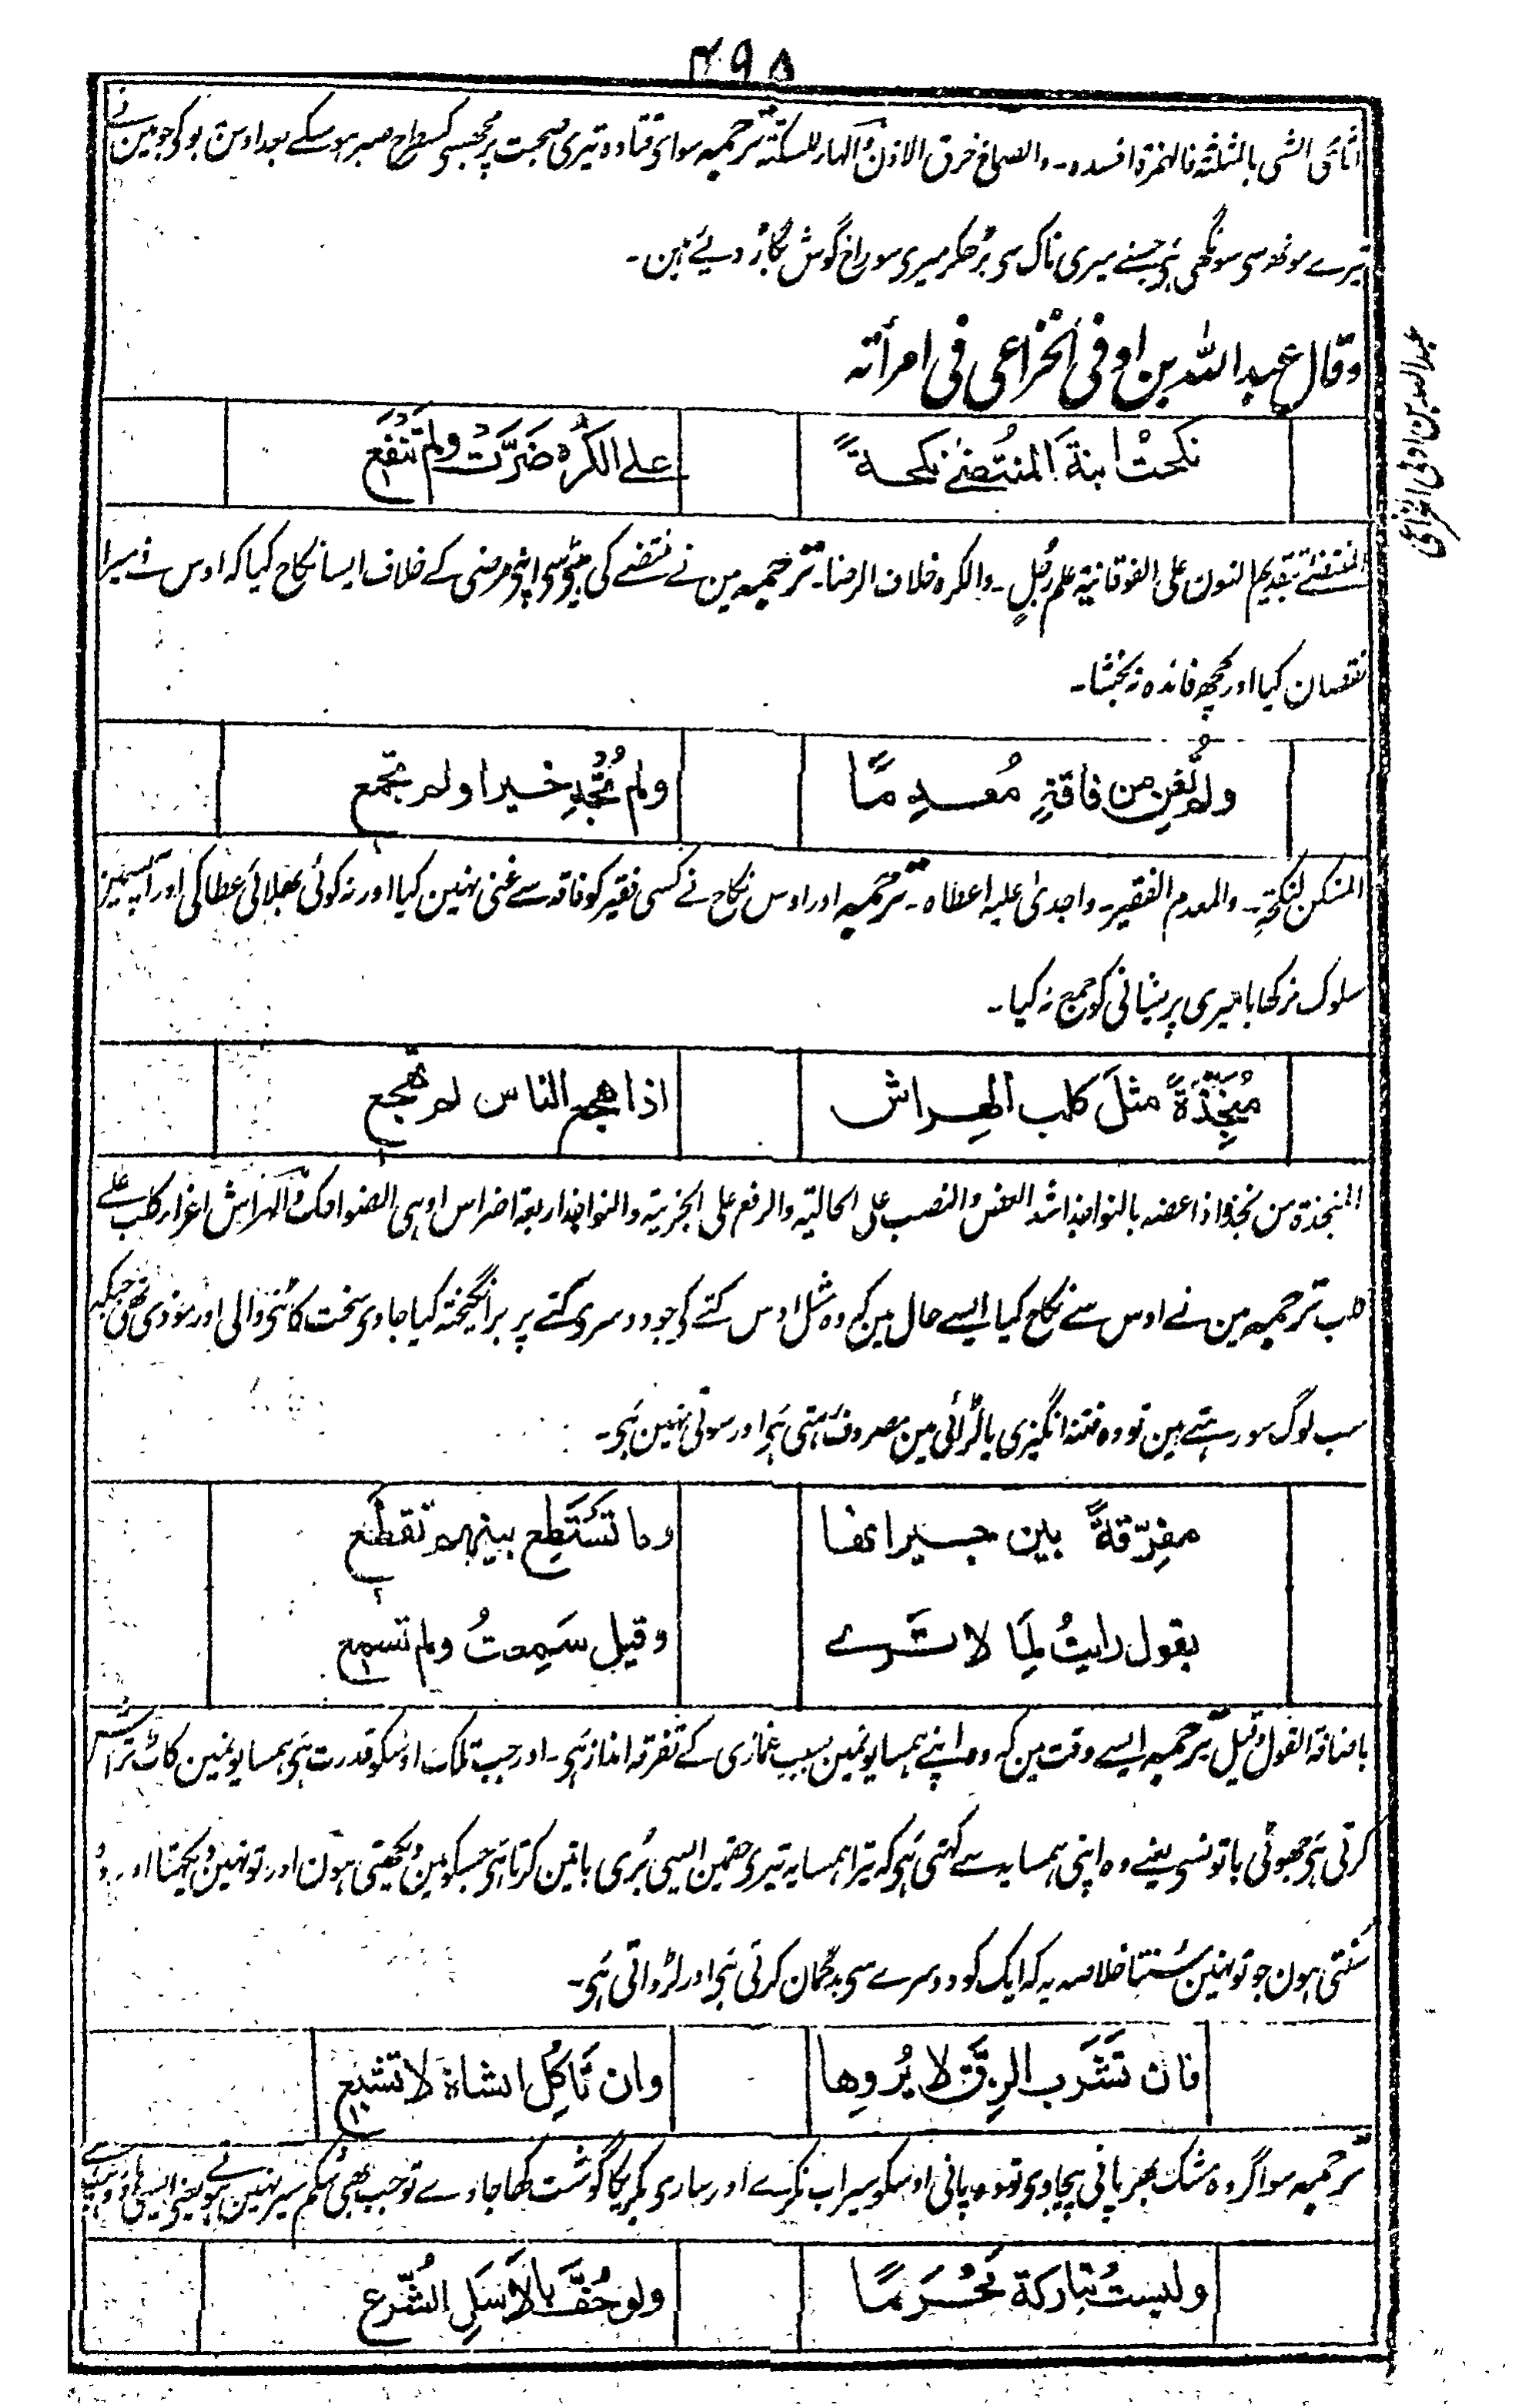 ۴۹۵
اثأی الشی بالمثلثة فالہمزة افسدہ۔ والصماخ خرق الاذن والہاء للسکتة ترجمہ سو ای قتادہ تیری صحبت پر مجھسی کسطرح صبر ہو سکے بعد اوس بو کی جو مین نے
تیرے مونھ سی سونگھی ہی جسنے میری ناک سی بڑھکر میری سوراخ گوش بگاڑ دیئے ہین۔
وقال عبد اللہ بن اوفی الخزاعی فی امرأتہ
عبد اللہ بن اوفی الخزاعی
نکحتُ ابنةَ المنتُضےٰ نکحةً علے الکُرہ ضَرَّتْ ولم تَنْفَع
المنتضے بتقدیم النون علی الفوقانیة علم رجلٍ۔ والکرہ خلاف الرضا۔ ترجمہ مین نے منتضے کی بیٹی سی اپنی مرضی کے خلاف ایسا نکاح کیا کہ اوس نی میرا
نقصان کیا اور کچھ فائدہ نہ بخشا۔
ولم تُغنِ من فاقةٍ مُعدِمًا ولم تُجْدِ خیرا ولم تجمع
المنکن لنکحةٍ۔ والمعدم الفقیر۔ واجدیٰ علیہ اعطاہ۔ ترجمہ اور اوس نکاح نے کسی فقیر کو فاقہ سے غنی نہین کیا اور نہ کوئی بھلائی عطا کی اور آپسمین
سلوک نرکھا یا میری پریشانی کو جمع نہ کیا۔
مُنَجِّذَةً مثلَ کلب الہِراش اذا ھجع الناس لم تھجع
المنجذة من نجذہ اذا عضہ بالنواجذ اشد العض والنصب علی الحالیة والرفع علی الخبریة والنواجذ اربعة اضراس او ہی الضواحک والہراش اغراء کلب علے
کلب ترجمہ مین نے اوس سے نکاح کیا ایسے حال مین کہ وہ مثل اوس کتے کی جو دوسری کتے پر برانگیختہ کیا جاوی سخت کاٹنی والی اور موذی تھی جبکہ
سب لوگ سو رہتے ہین تو وہ فتنہ انگیزی یا لڑائی مین مصروف ہتی ہی اور سوتی نہین ہی۔
مفرّقةً بین جیرانھا وما تَسْتَطِع بینہم تقطَع
بقول رایتُ لِمَا لا تَرے وقیل سَمِعتُ ولم تسمع
باضافة القول وقیل ترجمہ ایسے وقت مین کہ وہ اپنے ہمسایونمین بسبب غمازی کے تفرقہ انداز ہی۔ اور جب تلک اوسکو قدرت ہی ہمسایونمین کاٹ تراش
کرتی ہی جھوٹی باتونسی یعنے وہ اپنی ہمسایہ سے کہتی ہی کہ تیرا ہمسایہ تیری حقمین ایسی بُری باتین کرتا ہی جسکو مین دیکھتی ہون اور تو نہین دیکھتا اور وہ
سُنتی ہون جو تو نہین سُنتا خلاصہ یہ کہ ایک کو دوسرے سی بدگمان کرتی ہی اور لڑواتی ہی۔
فان تشَرَب الزِقّ لا یُروِھا وان تَأکلِ الشاةَ لا تشبع
ترجمہ سو اگر وہ مشک بھر پانی پیجاوی تو وہ پانی اوسکو سیراب نکرے اور ساری بکریکا گوشت کھا جاوے تو جب بھی شکم سیر نہین ہو یعنی ایسی
ولیستُ بتارکة مَحْرَمًا ولو حُفَّ بالاَسَلِ الشُّرَّع